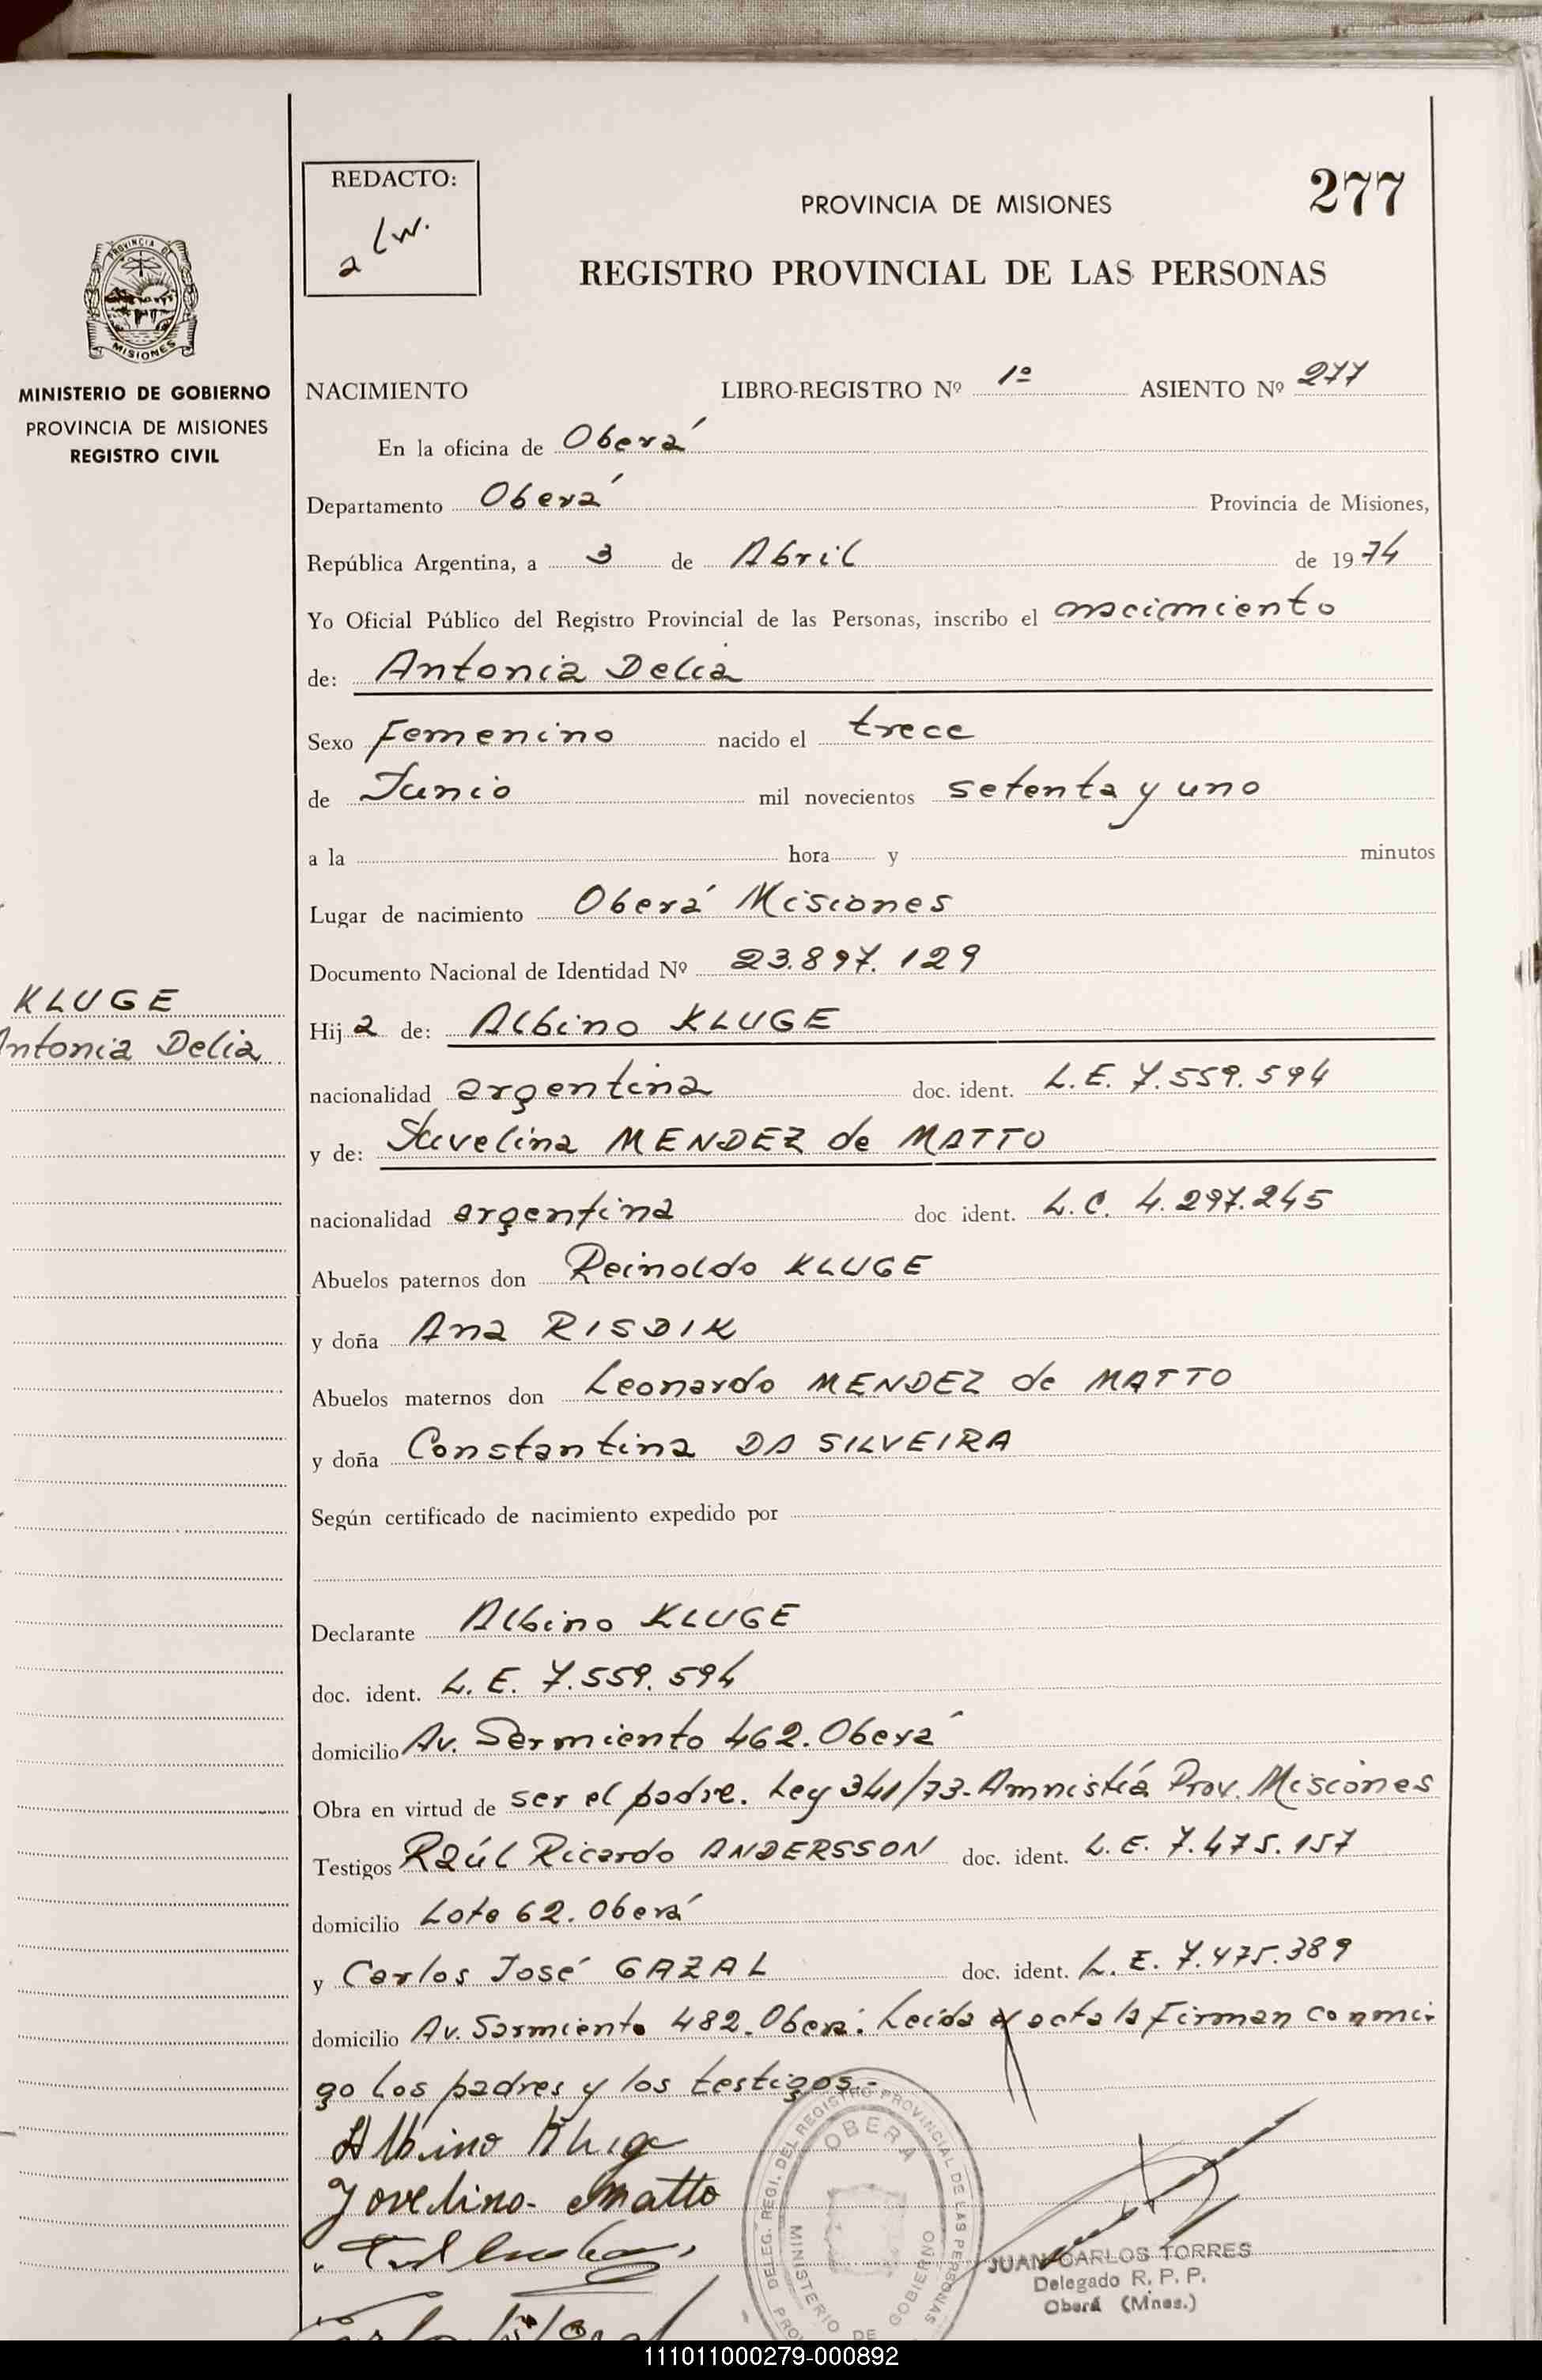 REDACTO:
PROVINCIA DE MISIONES
277
REGISTRO PROVINCIAL DE LAS PERSONAS
PROVINCIA DE
MISIONES
MINISTERIO DE GOBIERNO
PROVINCIA DE MISIONES
REGISTRO CIVIL
NACIMIENTO LIBRO-REGISTRO Nº 1º ASIENTO Nº 277
En la oficina de Oberá
Departamento Oberá Provincia de Misiones,
República Argentina, a 3 de Abril de 1974
Yo Oficial Público del Registro Provincial de las Personas, inscribo el nacimiento
de: Antonia Delia
Sexo Femenino nacido el trece
de Junio mil novecientos setenta y uno
a la hora y minutos
Lugar de nacimiento Oberá Misiones
Documento Nacional de Identidad Nº 23.897.129
KLUGE
Antonia Delia
Hija de: Albino KLUGE
nacionalidad argentina doc. ident. L.E. 7.559.594
y de: MENDEZ de MATTO
nacionalidad argentina doc ident. L.C. 4.297.245
Abuelos paternos don Reinoldo KLUGE
y doña Ana RISDIK
Abuelos maternos don Leonardo MENDEZ de MATTO
y doña Constantina DA SILVEIRA
Según certificado de nacimiento expedido por
Declarante Albino KLUGE
doc. ident. L.E. 7.559.594
domicilio Av. Sarmiento 462. Oberá
Obra en virtud de ser el padre. Ley 341/73-Amnistía Prov. Misiones
Testigos Raúl Ricardo ANDERSSON doc. ident. L.E. 7.475.157
domicilio Lote 62. Oberá
y Carlos José GAZAL doc. ident. L.E. 7.475.389
domicilio Av. Sarmiento 482. Oberá. Leída acta la Firman conmi-
go los padres y los testigos.-
Albino Kluge
Jovelina Matto
DELEG. REGI. DEL REGISTRO PROVINCIAL DE LAS PERSONAS
OBERA
MINISTERIO DE GOBIERNO
JUAN CARLOS TORRES
Delegado R. P. P.
Oberá (Mnes.)
111011000279-000892